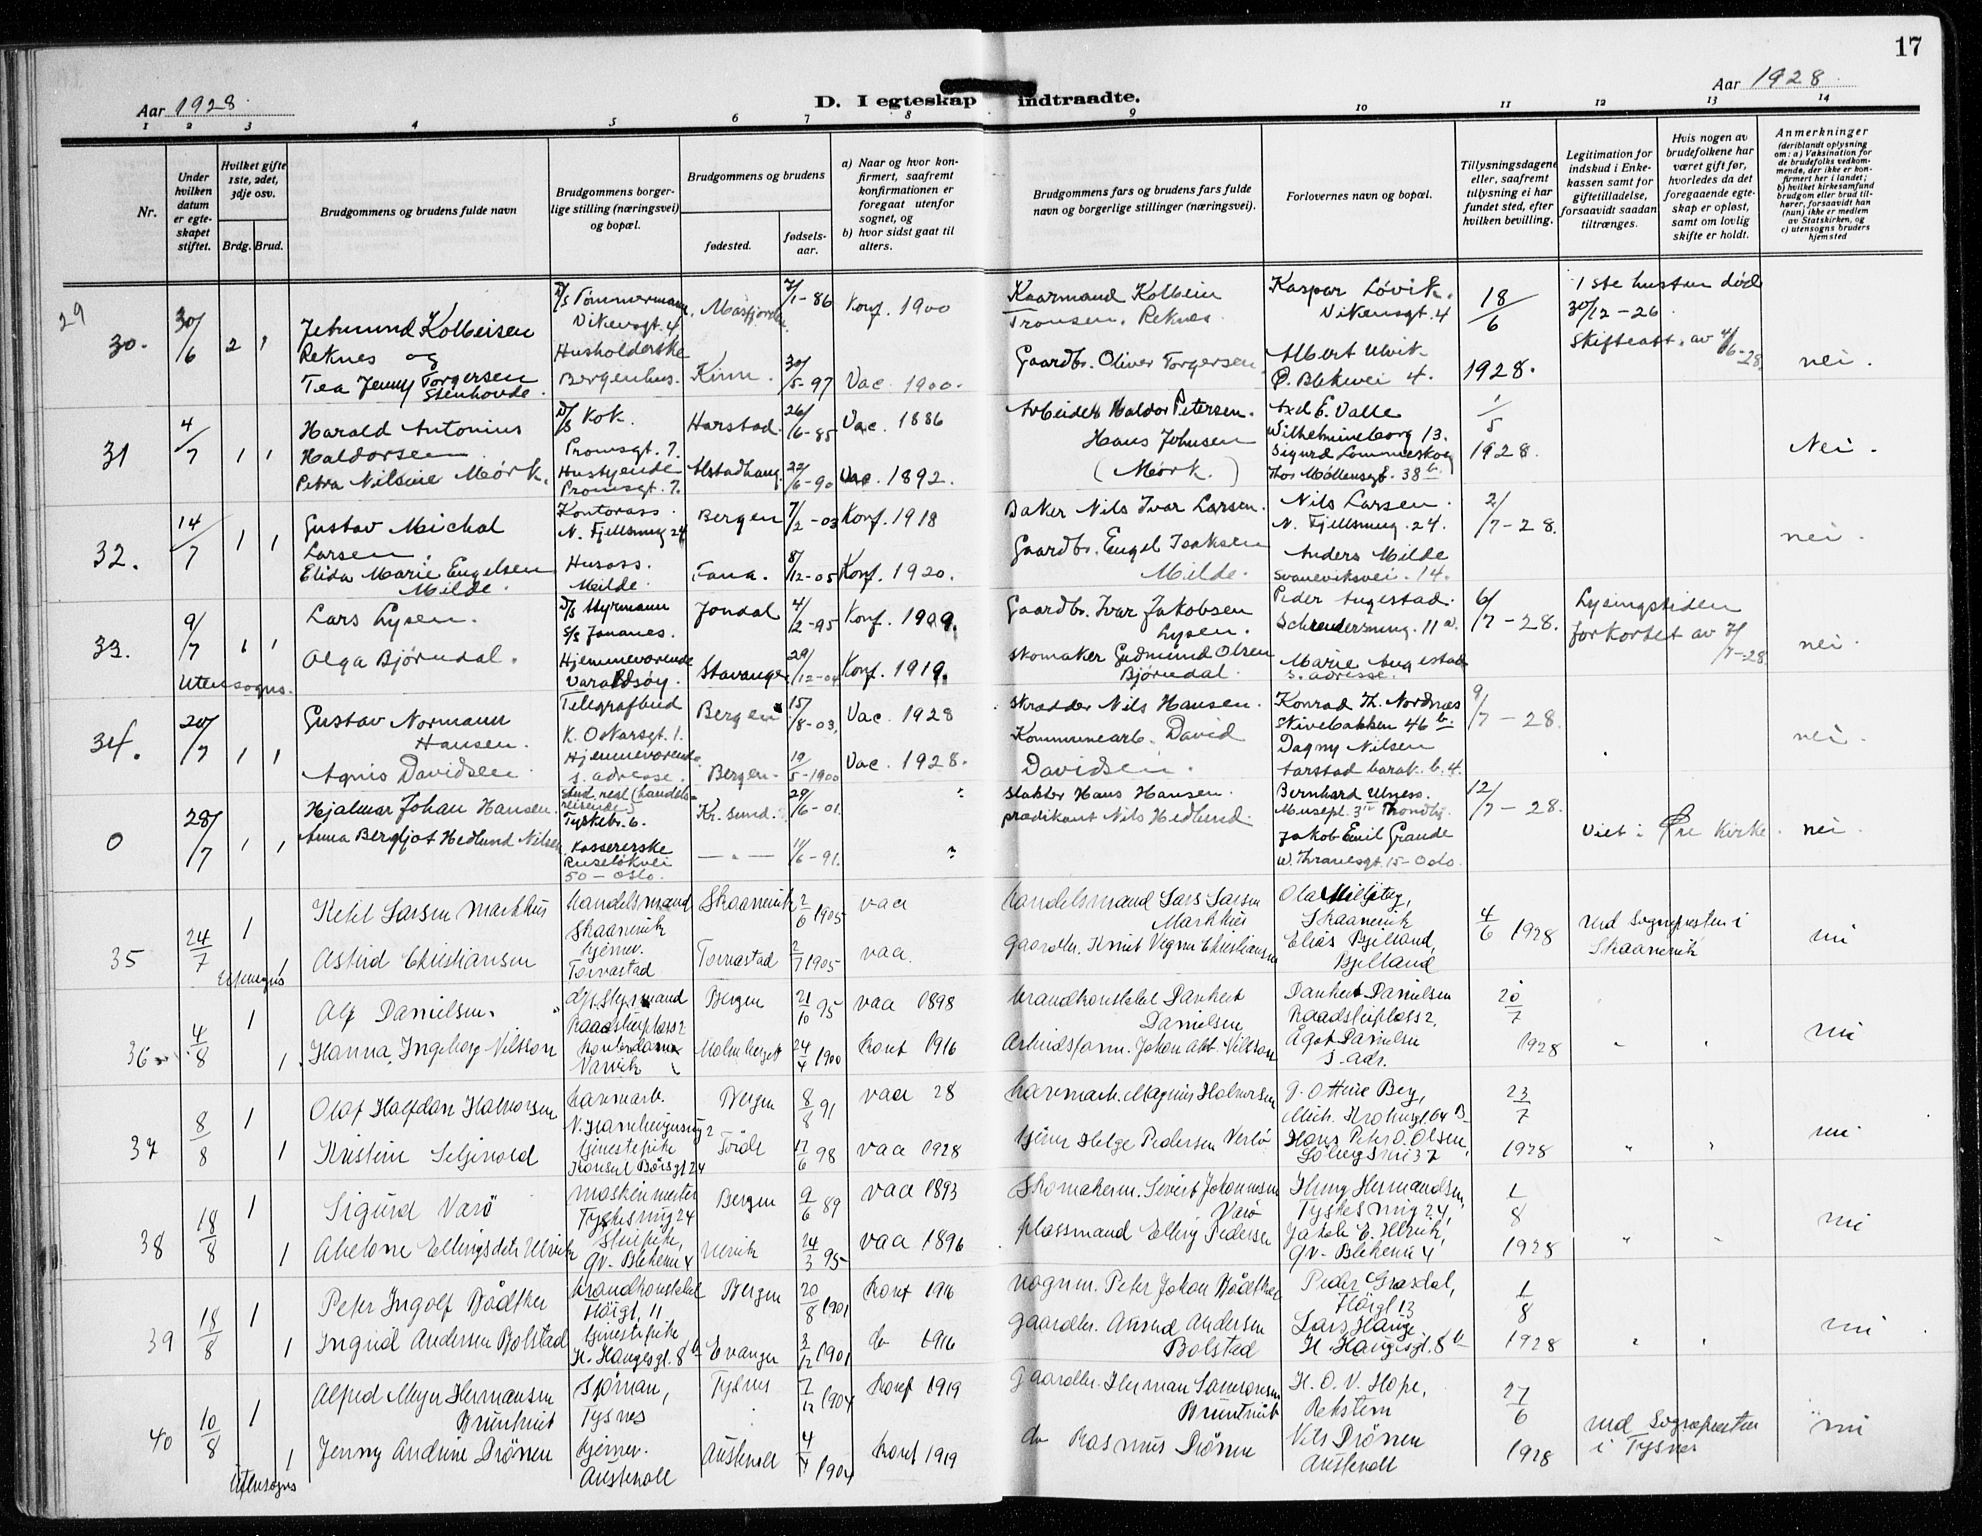 17
Aar 1928.
D. I egteskap indtraadte.
Aar 1928.
1 2 3 4 5 6 7 8 9 10 11 12 13 14
Nr.
Under hvilken datum er egteskapet stiftet.
Hvilket gifte 1ste, 2det, 3dje osv.
Brdg. Brud.
Brudgommens og brudens fulde navn
Brudgommens borgerlige stilling (næringsvei) og bopæl.
Brudgommens og brudens
fødested.
fødselsaar.
a) Naar og hvor konfirmert, saafremt konfirmationen er foregaat utenfor sognet, og
b) hvor sidst gaat til alters.
Brudgommens fars og brudens fars fulde navn og borgerlige stillinger (næringsvei).
Forlovernes navn og bopæl.
Tillysningsdagene eller, saafremt tillysning ei har fundet sted, efter hvilken bevilling.
Legitimation for indskud i Enkekassen samt for giftetilladelse, forsaavidt saadan tiltrænges.
Hvis nogen av brudefolkene har været gift før, hvorledes da det foregaaende egteskap er opløst, samt om lovlig skifte er holdt.
Anmerkninger
(deriblandt oplysning om: a) Vaksination for de brudefolks vedkommende, der ikke er konfirmert her i landet; b) hvilket kirkesamfund brudgom eller brud tilhører, forsaavidt han (hun) ikke er medlem av Statskirken, og c) utensogns bruders hjemsted
29
30. 30/6 2 1
Jetmund Kolbeisen
Reknes og
Tea Jenny Torgersen
Stenhovde.
D/S Tømmermann
Vikensgt. 4
Husholderske
Bergenhus.
Masfjorden.
Kinn.
7/1-86
30/5-97
Konf. 1900
Vac. 1900.
Kaarmand Kolbein
Tronsen. Reknes.
Gaardbr. Oliver Torgersen
Kaspar Løvik.
Vikensgt. 4
Albert Ulvik
Ø. Blekevei 4.
18/6
1928.
1ste hustru død
30/12-26.
Skifteatt. av 4/6-28
nei.
31 4/7 1 1
Harald Antonius
Haldorsen
Petra Nilsine Mørk.
D/S Kok.
Promsgt. 7.
Hustjende
Promsgt. 7.
Harstad.
Alstadhaug
26/6-85
22/6-90
Vac. 1886
Vac. 1892.
Arbeider Haldor Petersen.
Hans Johnsen
(Mørk.)
Axd E. Valle
Wilhelmineborg 13.
Sigurd Lømmeskog
Thor Møllersgt. 38 b.
1/5
1928.
Nei.
32. 14/7 1 1
Gustav Michal
Larsen.
Elida Marie Engelsen
Milde.
Kontorass.
N. Fjellsmug 24
Husass.
Milde.
Bergen
Fana.
7/2-03
8/12-05
Konf. 1918
Konf. 1920.
Baker Nils Ivar Larsen.
Gaardbr. Engel Isaksen
Milde.
Nils Larsen.
N. Fjellsmug. 24.
Anders Milde
Svaneviksvei. 14.
2/7-28.
nei.
33. 9/7 1 1
Utensogns.
Lars Lysen.
Olga Bjørndal.
D/S Styrmann
S/S Jananes.
Hjemmeværende
Varaldsøy.
Jondal
Stavanger
4/2-95
29/12-04
Konf. 1909.
Konf. 1919.
Gaardbr. Ivar Jakobsen
Lysen.
Skomaker Gudmund Olsen
Bjørndal.
Peder Augestad.
Schreudersmug. 11 a.
Marie Augestad
s. adresse.
6/7-28.
Lysingstiden
forkortet av 7/7-28
nei.
34. 20/7 1 1
Gustav Normann
Hansen.
Agnes Davidsen.
Telegrafbud
K. Oskarsgt. 1.
Hjemmeværende
s. adresse.
Bergen
Bergen.
15/8-03.
19/5-1900
Vac. 1928
Vac. 1928.
Skrædder Nils Hansen.
Kommunearb. David
Davidsen.
Konrad Th. Nordnæs
Skivebakken 46 b.
Dagny Nilsen
Aarstad barak. b. 4.
9/7-28.
nei.
0 28/7 1 1
Hjalmar Johan Hansen.
Anna Bergljot Hedlund Nilsen
Stud. real (handelsreisende)
Tyskebr. 6.
Kassererske
Ruseløkvei
50 - Oslo.
Kr. sund.
— " —
29/6-01.
11/6-91.
?
?
Slakter Hans Hansen.
Prædikant Nils Hedlund.
Bernhard Ulness.
Jakob Emil Grande
W. Thranesgt. 15 - Oslo.
12/7-28.
Viet i Øre Kirke.
nei.
35 24/7 1 1
Utensogns
Ketil Larsen Markhus
Astrid Christiansen
Handelsmand
Skaanevik
hjemev.
Torvastad
Skaanevik
Torvastad
2/6 1905
2/7 1905
vaa
vaa.
Handelsmand Lars Larsen
Markhus
Gaardbr. Knut Vegner Christiansen
Skaanevik
Elias Bjelland,
Bjelland
4/6 1928
Ved Sognepresten i
Skaanevik
nei
36 4/8 1 1
Alf Danielsen.
Hanna Ingeborg Nilsson
d/s. Styrmand
Raadstuplass 2
Kontordame
Narvik
Bergen
Malmberget
21/10 95
24/4 1900
vaa 1898
konf 1916
Brandkonstabel Dankert
Danielsen
Arbeidsform. Johan Alb. Nilsson
Dankert Danielsen
Raadstuplass 2,
Ågot Danielsen
s. adr.
20/7
1928 " "
nei
37 8/8 1 1
Olaf Halfdan Halvorsen
Kristine Seljevold
havnearb.
tjenestepike
Konsul Børsgt 24
Bergen
8/8 91
17/6 98
vaa 28
vaa 1928
Havnearb. Magnus Halvorsen
G. Ottine Berg,
Mich. Krohnsgt 64 B
Hans Peter O. Olsen,
23/7
1928 " "
nei
38 18/8 1 1
Sigurd Varø
Abelone Ellingsdatr Ulvik
maskinmester
Tyskesmug 24
Gv. Blekevei 4
Bergen
9/6 89
24/3 95
vaa 1893
vaa 1896
Skomakerm. Sivert Johannesen
Varø
Plassmand Elling Pedersen
Henny Hermandsen,
Tyskesmug 24,
Jakob E. Ulvik,
Gv. Blekevei 4
1/8
1928 " "
nei
39 18/8 1 1
Peter Ingolf Bødtker
Ingrid Andersen Bolstad
brandkonstabel
Fløigt. 11
tjenestepike
H. Haugesgt. 8 b
Bergen
Evanger
20/8 1901
3/12 1901
konf 1916
do 1916
vognm. Peter Johan Bødtker
gaardbr. Anders Andersen
Bolstad
Peder Grasdal,
Fløigt 13
Lars Hauge
H. Haugesgt. 8 b
1/8
1928 " "
nei
40 10/8 1 1
Utensogns
Alfred Meyer Hermansen
Bruntveit
Jenny Andrine Drønen
Sjømann,
Tysnes
hjemev.
Austevoll
Tysnes
Austevoll
7/12 1904
4/4 1904
konf 1919
konf 1919
Gaardbr. Herman Samsonsen
Bruntveit
do Rasmus Drønen
H. O. V. Hope,
Reksteren
Nils Drønen
Austevoll
27/6
1928
ved Sognepresten
i Tysnes
nei